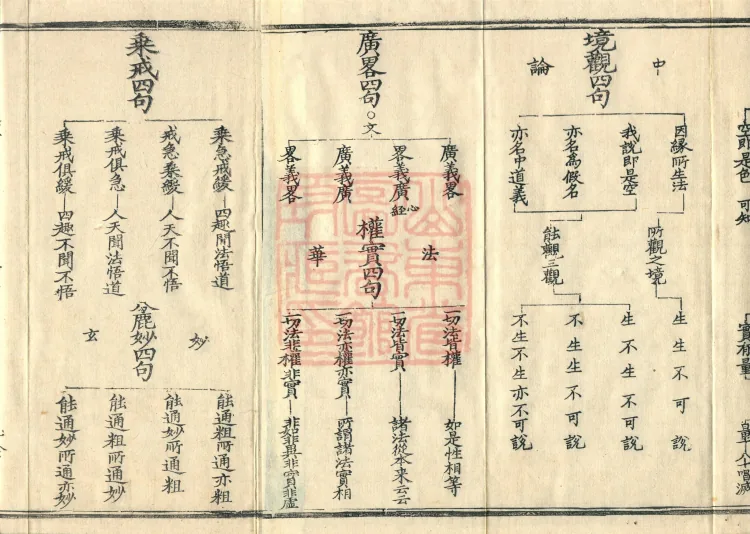 空即是色
可知
實相量
境觀四句
中
論
因緣所生法
我說即是空
亦名為假名
亦名中道義
所觀之境
能觀三觀
生生不可說
生不生不可說
不生生不可說
不生不生亦不可說
廣畧四句○文
廣義畧
畧義廣
心經
廣義廣
畧義畧
權實四句
法
華
一切法皆權—如是性相等
一切法皆實—諸法從本來云云
一切法亦權亦實—所謂諸法實相
一切法非權非實—非如非異非實非虛
乘戒四句
乘急戒緩—四趣聞法悟道
戒急乘緩—人天不聞不悟
乘戒俱急—人天聞法悟道
乘戒俱緩—四趣不聞不悟
麁妙四句
妙
玄
能通麁所通亦麁
能通妙所通麁
能通麁所通妙
能通妙所通亦妙